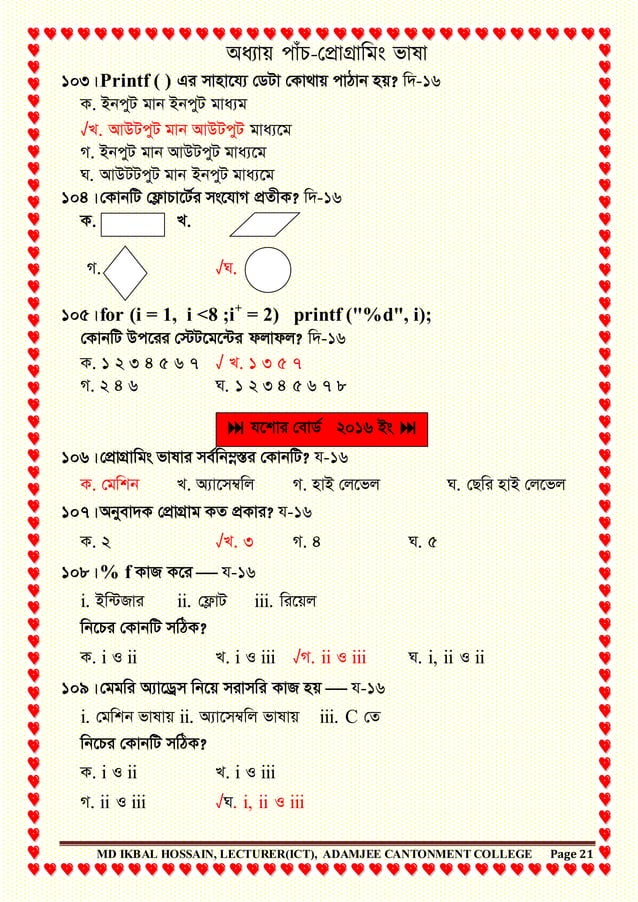 অধ্যায় পাঁচ-প্রোগ্রামিং ভাষা
১০৩। Printf ( ) এর সাহায্যে ডেটা কোথায় পাঠান হয়? দি-১৬
ক. ইনপুট মান ইনপুট মাধ্যম
√খ. আউটপুট মান আউটপুট মাধ্যমে
গ. ইনপুট মান আউটপুট মাধ্যমে
ঘ. আউটটপুট মান ইনপুট মাধ্যমে
১০৪। কোনটি ফ্লোচার্টের সংযোগ প্রতীক? দি-১৬
ক. খ.
গ. √ঘ.
১০৫। for (i = 1, i <8 ;i+ = 2) printf ("%d", i);
কোনটি উপরের স্টেটমেন্টের ফলাফল? দি-১৬
ক. ১ ২ ৩ ৪ ৫ ৬ ৭ √ খ. ১ ৩ ৫ ৭
গ. ২ ৪ ৬ ঘ. ১ ২ ৩ ৪ ৫ ৬ ৭ ৮
যশোর বোর্ড ২০১৬ ইং
১০৬। প্রোগ্রামিং ভাষার সর্বনিম্নস্তর কোনটি? য-১৬
ক. মেশিন খ. অ্যাসেম্বলি গ. হাই লেভেল ঘ. ভেরি হাই লেভেল
১০৭। অনুবাদক প্রোগ্রাম কত প্রকার? য-১৬
ক. ২ √খ. ৩ গ. ৪ ঘ. ৫
১০৮। % f কাজ করে — য-১৬
i. ইন্টিজার ii. ফ্লোট iii. রিয়েল
নিচের কোনটি সঠিক?
ক. i ও ii খ. i ও iii √গ. ii ও iii ঘ. i, ii ও ii
১০৯। মেমরি অ্যাড্রেস নিয়ে সরাসরি কাজ হয় — য-১৬
i. মেশিন ভাষায় ii. অ্যাসেম্বলি ভাষায় iii. C তে
নিচের কোনটি সঠিক?
ক. i ও ii খ. i ও iii
গ. ii ও iii √ঘ. i, ii ও iii
MD IKBAL HOSSAIN, LECTURER(ICT), ADAMJEE CANTONMENT COLLEGE Page 21